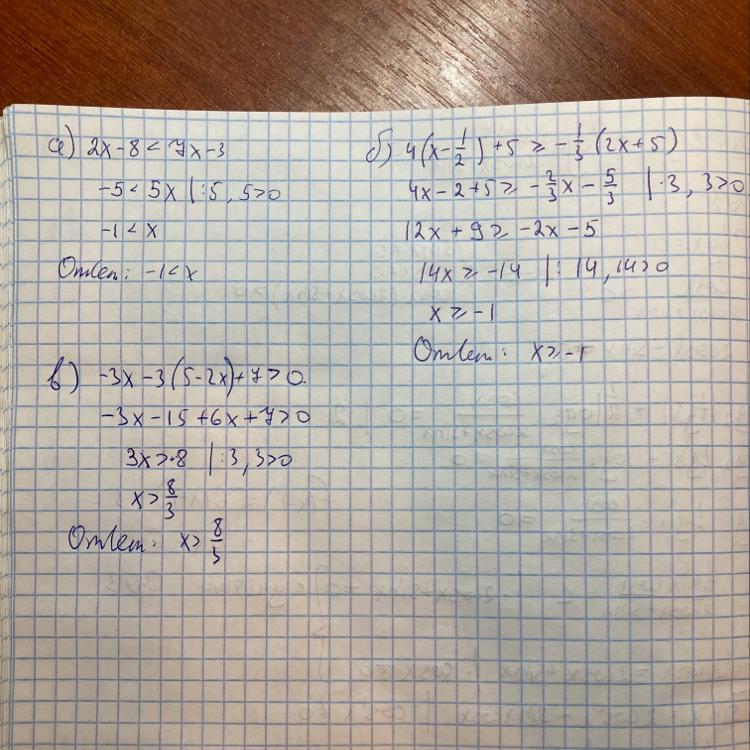 а) 2x-8 < 7x-3
-5 < 5x |:5, 5>0
-1 < x
Ответ: -1<x
б) 4(x-1/2)+5 ≥ -1/3(2x+5)
4x-2+5 ≥ -2/3x - 5/3 |·3, 3>0
12x+9 ≥ -2x-5
14x ≥ -14 |:14, 14>0
x ≥ -1
Ответ: x ≥ -1
в) -3x-3(5-2x)+7>0.
-3x-15+6x+7>0
3x>8 |:3, 3>0
x>8/3
Ответ: x>8/3